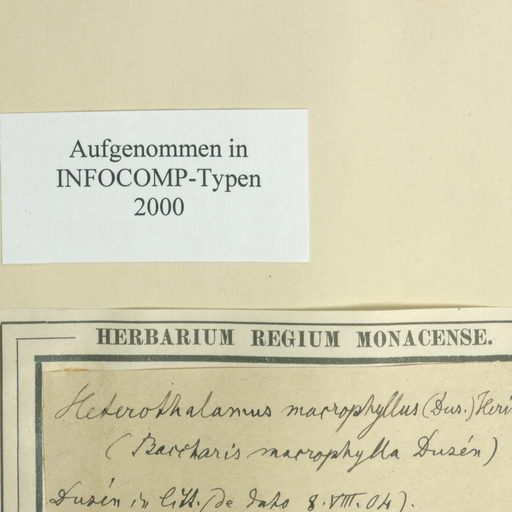 Aufgenommen in
INFOCOMP-Typen
2000
HERBARIUM REGIUM MONACENSE.
Heterothalamus macrophyllus (Dus.)
(Baccharis macrophylla Dusén)
Dusén in litt. (de dato 8. VIII. 04).